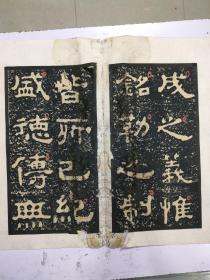 成之義惟
銘勒之制
皆所已紀
盛德傳無